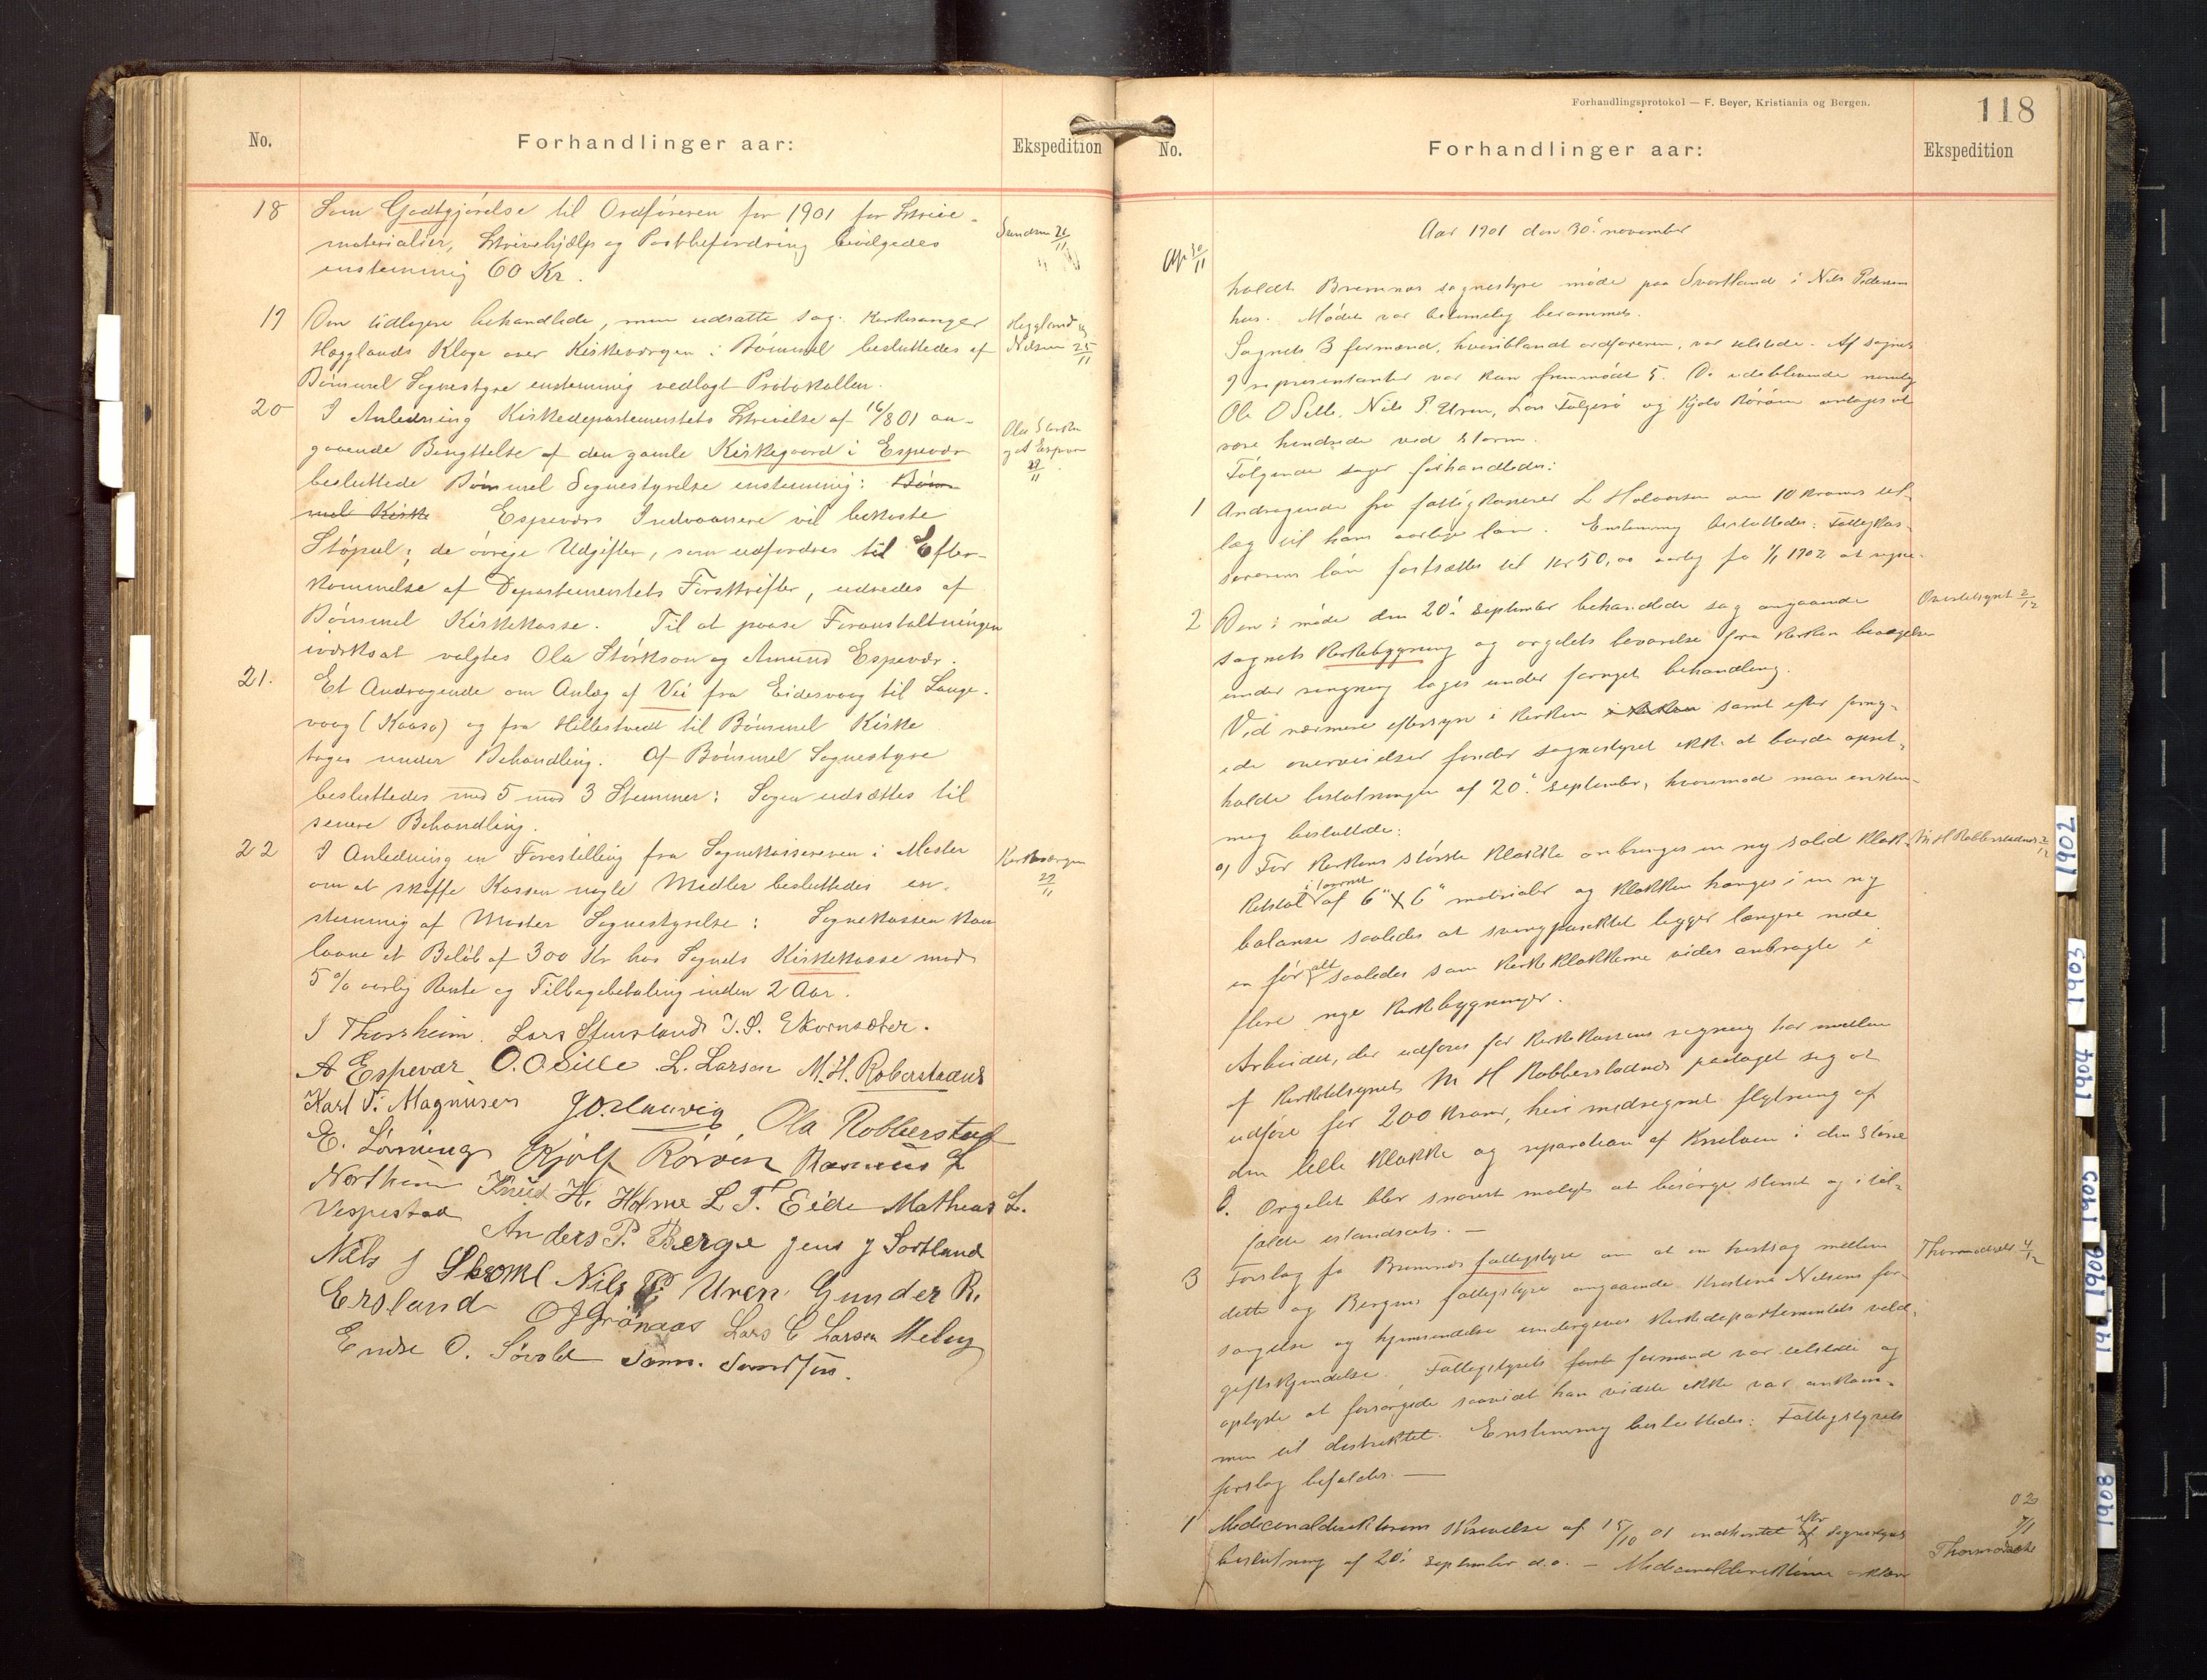 No.
Forhandlinger aar:
Ekspedition
18 Som Godtgjørelse til Ordføreren for 1901 for Skrive-
materialier, Skrivehjælp og Postbefordring bevilgedes
enstemmig 60 Kr.
19 Den tidligere behandlede, men udsatte sag: Kirkesanger
Hegglands Klage over Kirkeværgen i Bømmel besluttedes af
Bømmel Sognestyre enstemmig vedlagt Protokollen.
Heggland og
Nilsen 25/11
20 I Anledning Kirkedepartementets Skrivelse af 16/8 01 an-
gaaende Benyttelse af den gamle Kirkegaard i Espevær
besluttede Bømmel Sognestyrelse enstemmig: Bøm-
mel Kirke Espeværs Indvaanere vil bekoste
Støpul; de øvrige Udgifter, som udfordres til Efter-
kommelse af Departementets Forskrifter, udredes af
Bømmel Kirkekasse. Til at paase Foranstaltningen
iværksat valgtes Ola Størkson og Amund Espevær.
21. Et Andragende om Anlæg af Vei fra Eidesvaag til Lange-
vaag (Kaasa) og fra Hillestvedt til Bømmel Kirke
toges under Behandling. Af Bømmel Sognestyre
besluttedes med 5 mod 3 Stemmer: Sagen udsættes til
senere Behandling.
22 I Anledning en Forestilling fra Sognekassereren i Moster
om at skaffe Kassen nogle Midler besluttedes en-
stemmig af Moster Sognestyrelse: Sognekassen kan
laane et Beløb af 300 Kr hos Sognets Kirkekasse mod
5 % aarlig Rente og Tilbagebetaling inden 2 Aar.
Kirkeværgen
29/11
J Thorsheim. Lars Stensland J. S. Ekornsæter.
A Espevær O. O Sille L. Larsen M. H. Robberstadnes
Karl T. Magnusen Ola Robberstad
E. Lønning Kjolf Rørøen Rasmus L
Northeim Knud H. Holme L T. Eide Mathias L.
Vespestad Anders P. Berge Jens J Sortland
Nils J Nils P Uren Gunder R.
Ersland O J Grønaas Lars C Larsen Meling
Endre O. Søvold
Forhandlingsprotokol — F. Beyer, Kristiania og Bergen.
118
No.
Forhandlinger aar:
Ekspedition
Aar 1901 den 30. november
holdt Bremnes sognestyre møde paa Svortland i Nils Pedersens
hus. Mødet var betimelig berammet.
Sognets 3 formænd, hvoriblandt ordføreren, var tilstede. Af sognets
9 repræsentanter var kun fremmødt 5. De udeblevende nemlig
Ole O Sille, Nils P. Uren, Lars Følgerø og Kjolv Rørøen antages at
være hindrede ved storm.
Følgende sager forhandledes:
1 Andragende fra fattigkasserer L Halvorsen om 10 kroners til-
læg til hans aarlige løn. Enstemmig besluttedes: Fattigkas-
sererens løn fastsættes til kr 50,00 aarlig fra 1/1 1902 at regne.
2 Den i møde den 20. september behandlede sag angaaende
sognets kirkebygning og orgelets bevarelse fra kirkens bevægelse
under ringning toges under fornyet behandling.
Ved nærmere eftersyn i kirken i kirken samt efter forny-
ede overveielser fandt sognestyret ikke at burde opret-
holde beslutningen af 20. september, hvorimod man enstem-
mig besluttede:
a) For kirkens største klokke anbringes en ny solid klok-
kestol i taarnet af 6" x 6" materialer og klokken hænges i en ny
balanse saaledes at svingpunktet ligger længere nede
en før alt saaledes som kirkeklokkerne vides anbragte i
flere nye kirkebygninger.
Arbeidet, der udføres for kirkekassens regning har medlem
af kirketilsynet M H Robberstadnes paataget sig at
udføre for 200 kroner, heri medregnet flytning af
den lille klokke og reparation af knebelen i den større
b. Orgelet blir snarest muligt at besørge stemt og i til-
fælde istandsat. —
3 Forslag fra Bremnes fattigstyre om at en tvistsag mellem
dette og Bergens fattigstyre angaaende Kristine Nilsens for-
sørgelse og hjemsendelse undergives kirkedepartementets vold-
giftskjendelse. Fattigstyrets formand var tilstede og
oplyste at forsørgede saavidt han vidste ikke var ankom-
men til distriktet. Enstemmig besluttedes: Fattigstyrets
forslag befaldes. —
1 Medicinaldirektørens skrivelse af 15/10 01 indhentet efter sognestyrets
beslutning af 20. september d.a. — Medicinaldirektøren erklærer
1902
1903
1904
1905
1906
1908